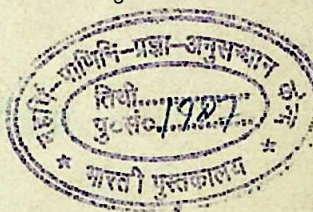 महर्षि-पाणिनि-प्रज्ञा-अनुसन्धान केन्द्र
तिथी..................
पु०सं० 1987
* भारती पुस्तकालय *